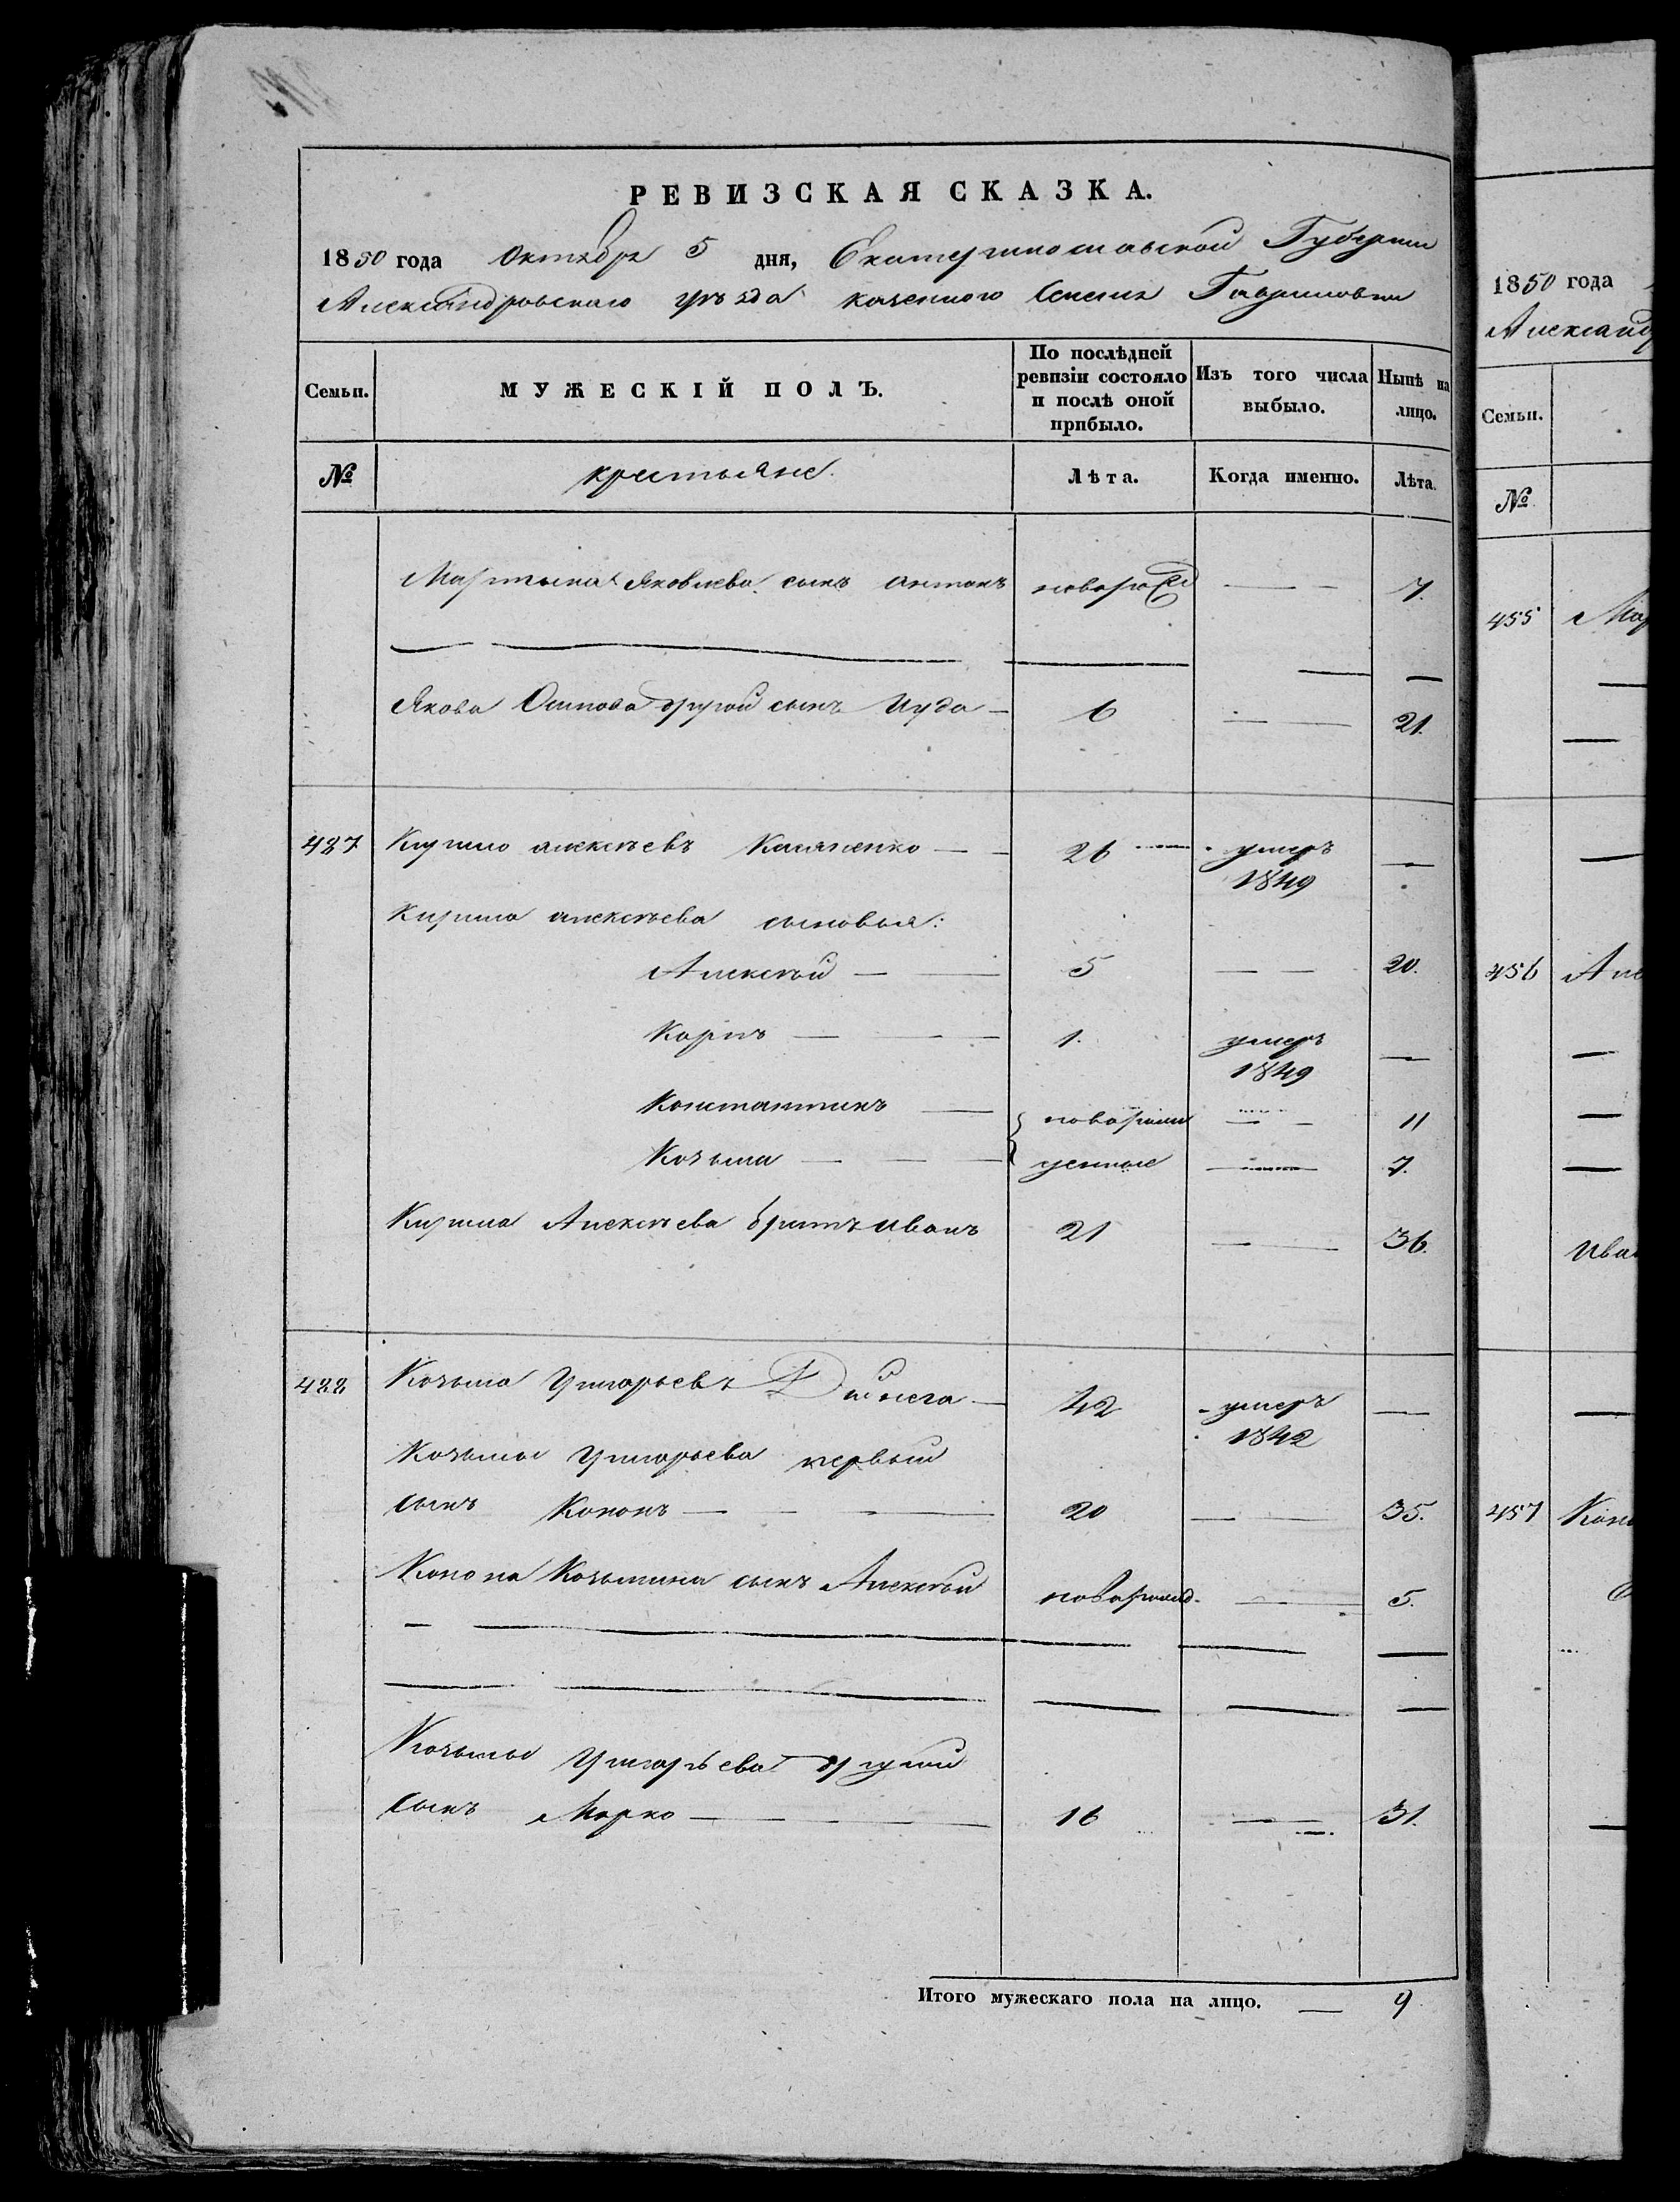 РЕВИЗСКАЯ СКАЗКА.
1850 года Октября 5 дня, Екатеринославской Губернии
Александровского уѣзда казенного Селения Гавриловки
Семьи. МУЖЕСКІЙ ПОЛЪ. По послѣдней ревизіи состояло и послѣ оной прибыло. Изъ того числа выбыло. Нынѣ на лицо.
№ крестьяне. Лѣта. Когда именно. Лѣта.
Мартына Яковлева сынъ Антонъ новорожд 7.
Якова Осипова другой сынъ Иуда 6 21.
487 Кирило Алексѣевъ Касяненко 26 умеръ
1849
Кирила Алексѣева сыновья:
Алексѣй 5 20.
Карпъ 1. умеръ
1849
Константинъ новорож 11
Козьма денные 7.
Кирила Алексѣева братъ Иванъ 21 36.
488 Козьма Григорьевъ 42 умеръ
1842
Козьмы Григорьева первый
сынъ Кононъ 20 35.
Конона Козьмина сынъ Алексѣй новорожд. 5.
Козьмы Григорьева другой
сынъ Марко 16 31.
Итого мужескаго пола на лицо. 9
1850 года
Александ
Семьи.
№
455 Мар
456 Але
Ива
457 Коно